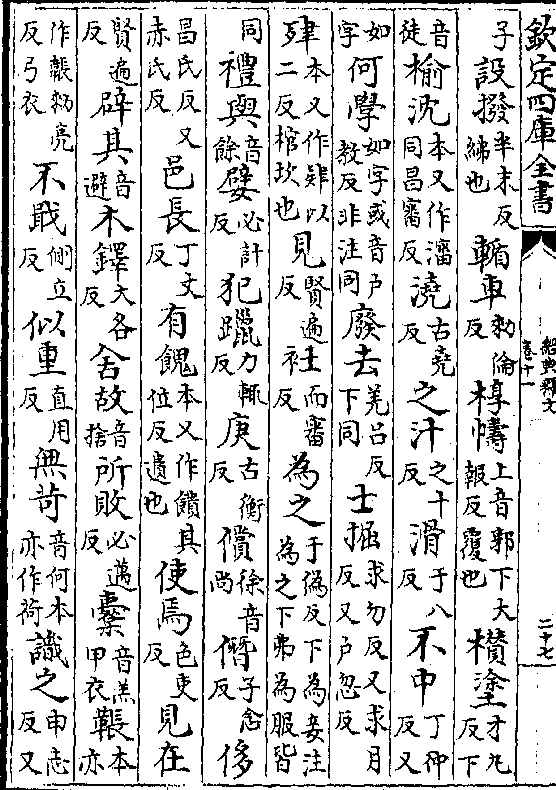 欽定四庫全書
經典釋文
卷十一
二十七
子設撥半末反紼也輴車勑倫反椁幬上音郭下大報反覆也欑塗才丸反下
音徒榆沈本又作瀋同昌審反澆古堯反之汁之十反滑于八反不中丁仲反又
如字何學如字或音户教反非注同廢去羌吕反下同士掘求勿反又求月反又户忽反
肂本又作殔以二反棺坎也見賢遍反衽而審反為之于偽反下為妾注為之下弗為服皆
同禮與音餘嬖必計反犯躐力輒反庚古衡反償徐音尚僭子念反侈
昌氏反又赤氏反邑長丁丈反有餽本又作饋其位反遺也使焉色吏反見在
賢遍反辟其音避木鐸大各反舍故音捨所敗必邁反櫜音羔甲衣韔本亦
作䩨勑亮反弓衣不戢側立反似重直用反無苛音何本亦作荷識之申志反又